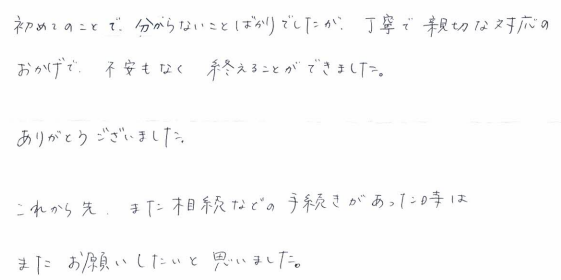 初めてのことで、分からないことばかりでしたが、丁寧で親切な対応の
おかげで、不安もなく 終えることができました。
ありがとうございました。
これから先、また相続などの手続きがあった時は
また お願いしたいと思いました。